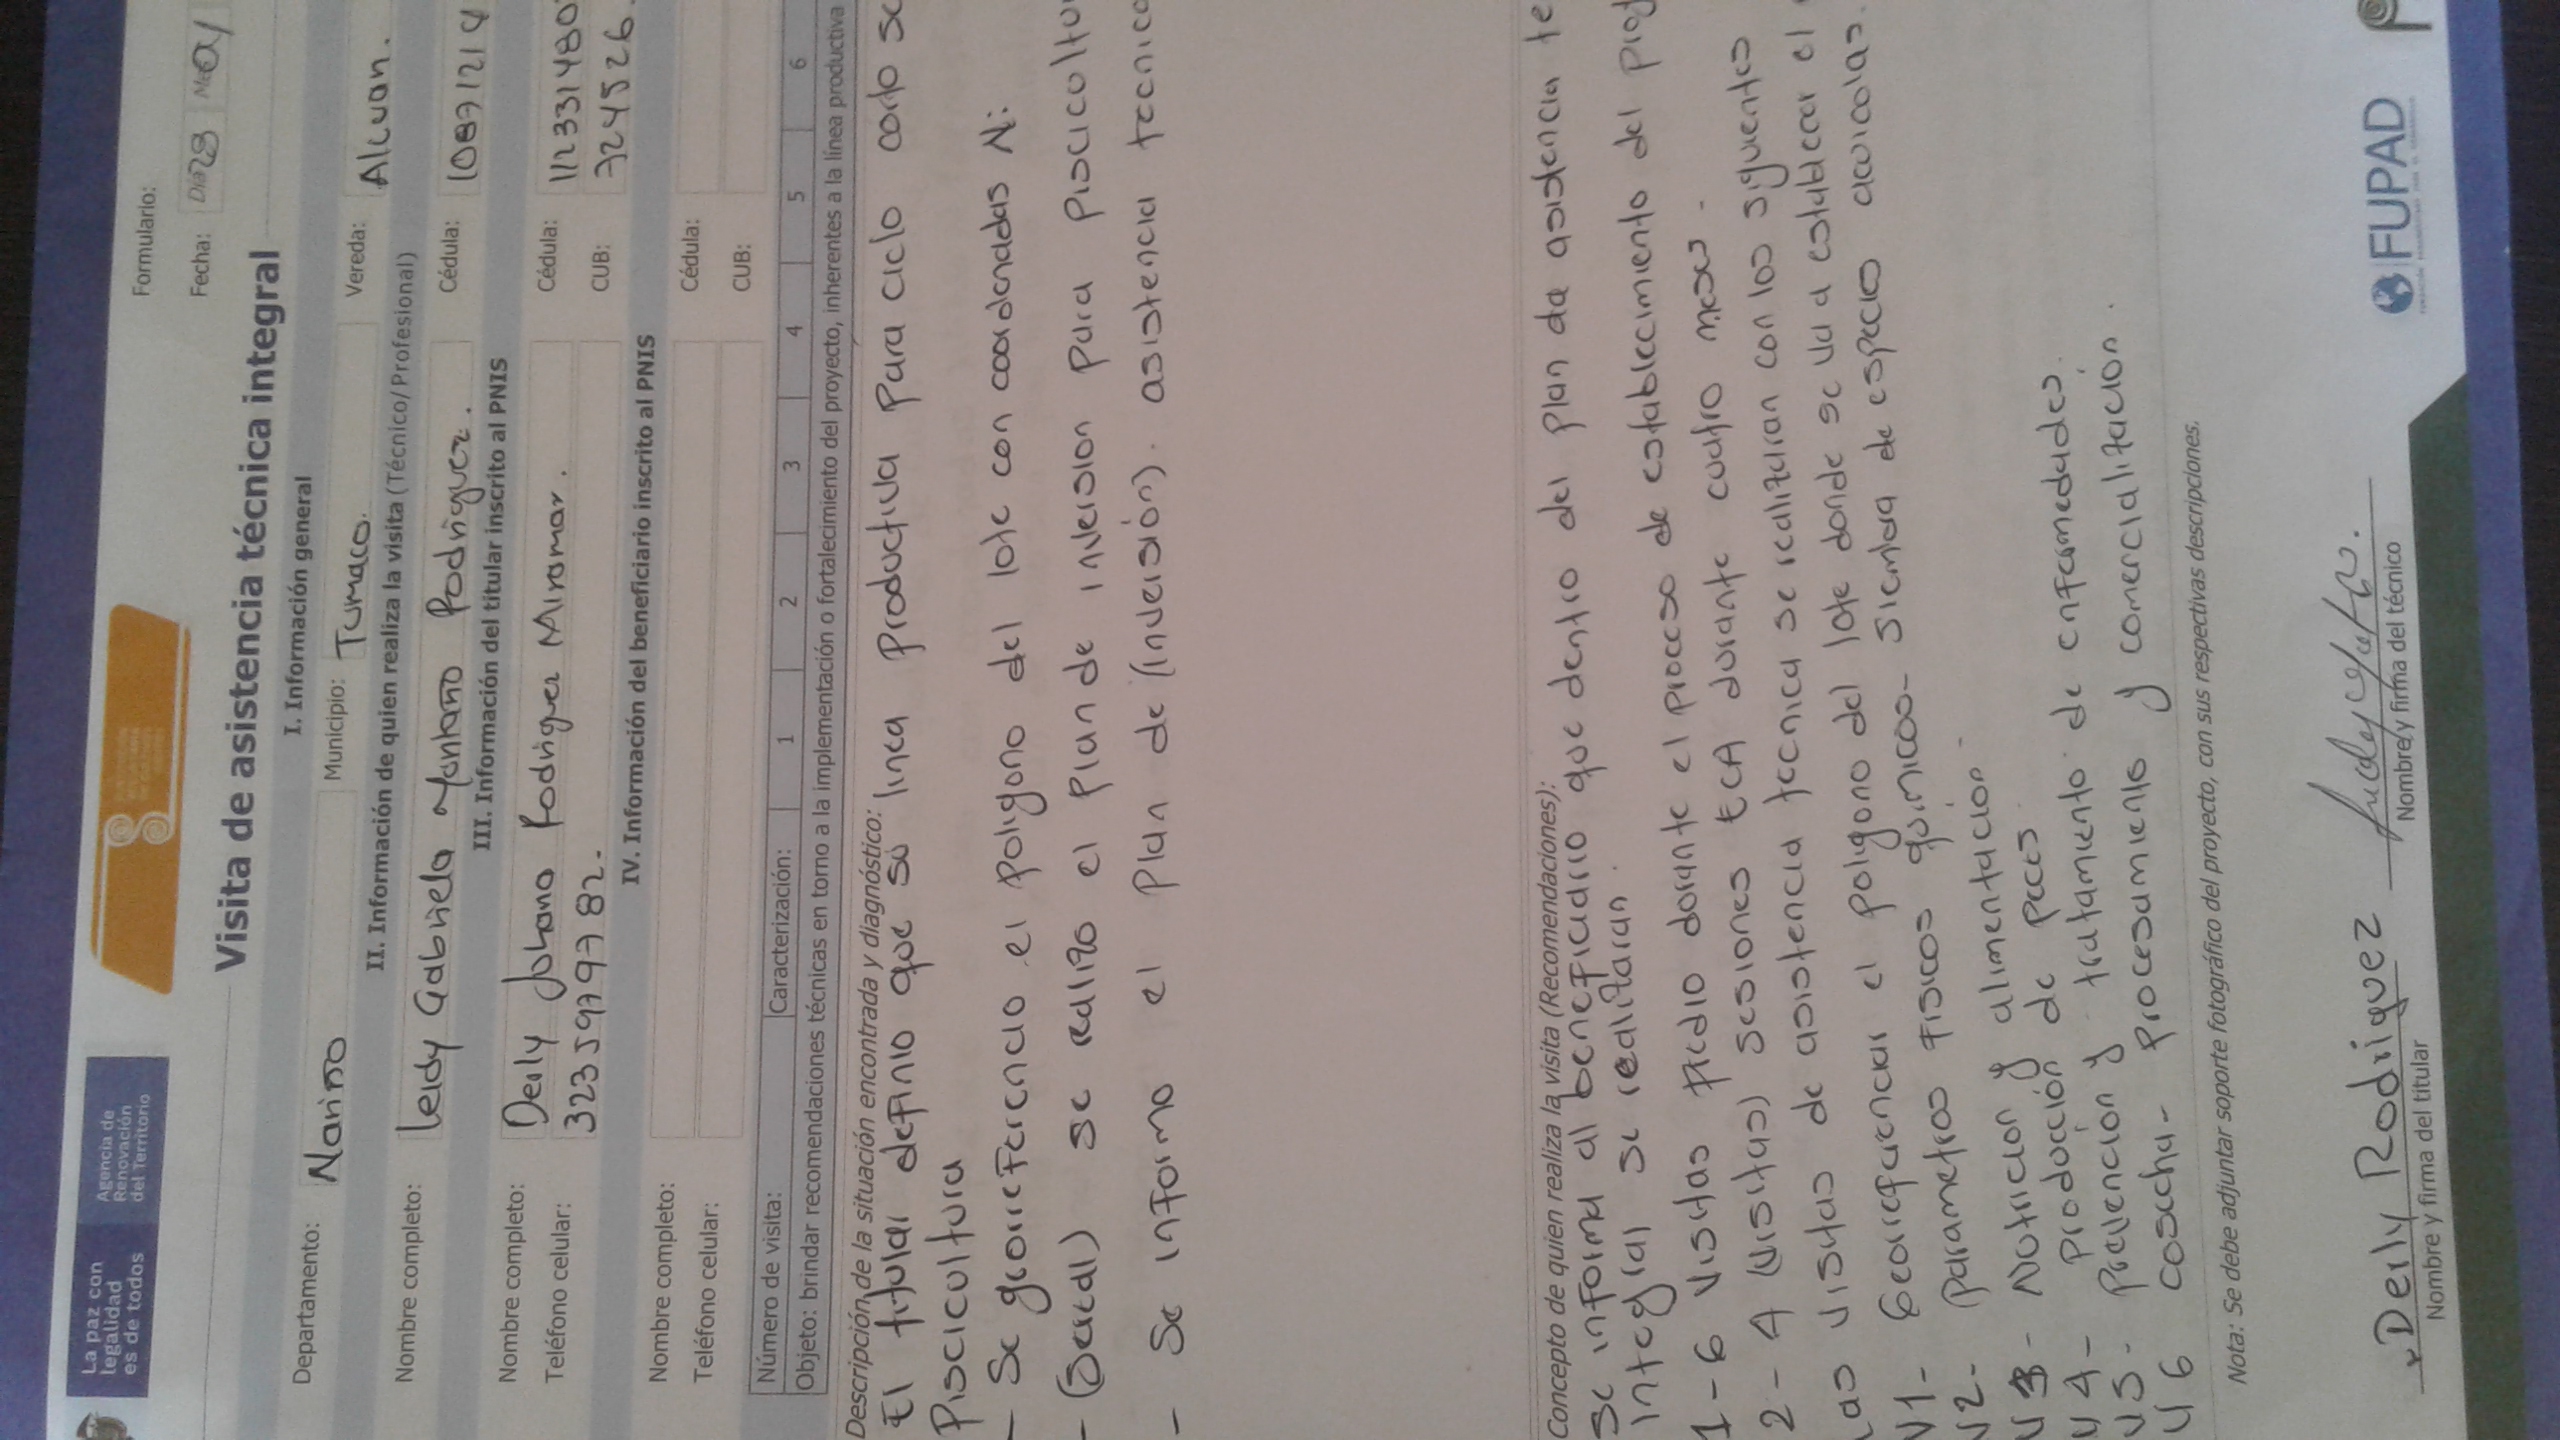 La paz con
legalidad
es de todos
Agencia de
Renovación
del Territorio
Formulario:
Fecha: Día 28 Mes
Visita de asistencia técnica integral
I. Información general
Departamento: Nariño Municipio: Tumaco. Vereda: Alcuan.
II. Información de quien realiza la visita (Técnico/ Profesional)
Nombre completo: Leidy Gabriela Montaño Rodriguez. Cédula: 10871214
III. Información del titular inscrito al PNIS
Nombre completo: Deily Johana Rodriguez Miramar. Cédula: 112331480
Teléfono celular: 3235979782. CUB: 724526.
IV. Información del beneficiario inscrito al PNIS
Nombre completo: Cédula:
Teléfono celular: CUB:
Número de visita: Caracterización: 1 2 3 4 5 6
Objeto: brindar recomendaciones técnicas en torno a la implementación o fortalecimiento del proyecto, inherentes a la línea productiva
Descripción de la situación encontrada y diagnóstico:
El titular definio que su linea productiva para ciclo corto se
Piscicultura
- Se georreferencio el poligono del lote con coordenadas N:
- se realizo el plan de inversion para piscicultu
- Se informo el plan de (inversión). asistencia tecnica
Concepto de quien realiza la visita (Recomendaciones):
Se informa al beneficiario que dentro del plan da asistencia te
integral se realizaran.
1 - 6 visitas predio durante el proceso de establecimiento del proy
2 - 4 (visitas) sesiones ECA durante cuatro meses.
Las visitas de asistencia tecnica se realizaran con los siguentes
V1- Georeferenciar el poligono del lote donde se va a establecer el
V2- parametros fisicos quimicos- siembra de especies acuicolas.
V3- Nutricion y alimentacion-
V4- producción de peces
V5- Prevencion y tratamiento de enfermedades.
V6 cosecha- procesamiento y comercialitacion.
Nota: Se debe adjuntar soporte fotográfico del proyecto, con sus respectivas descripciones.
Deily Rodriguez
Nombre y firma del titular
Nombre y firma del técnico
FUPAD